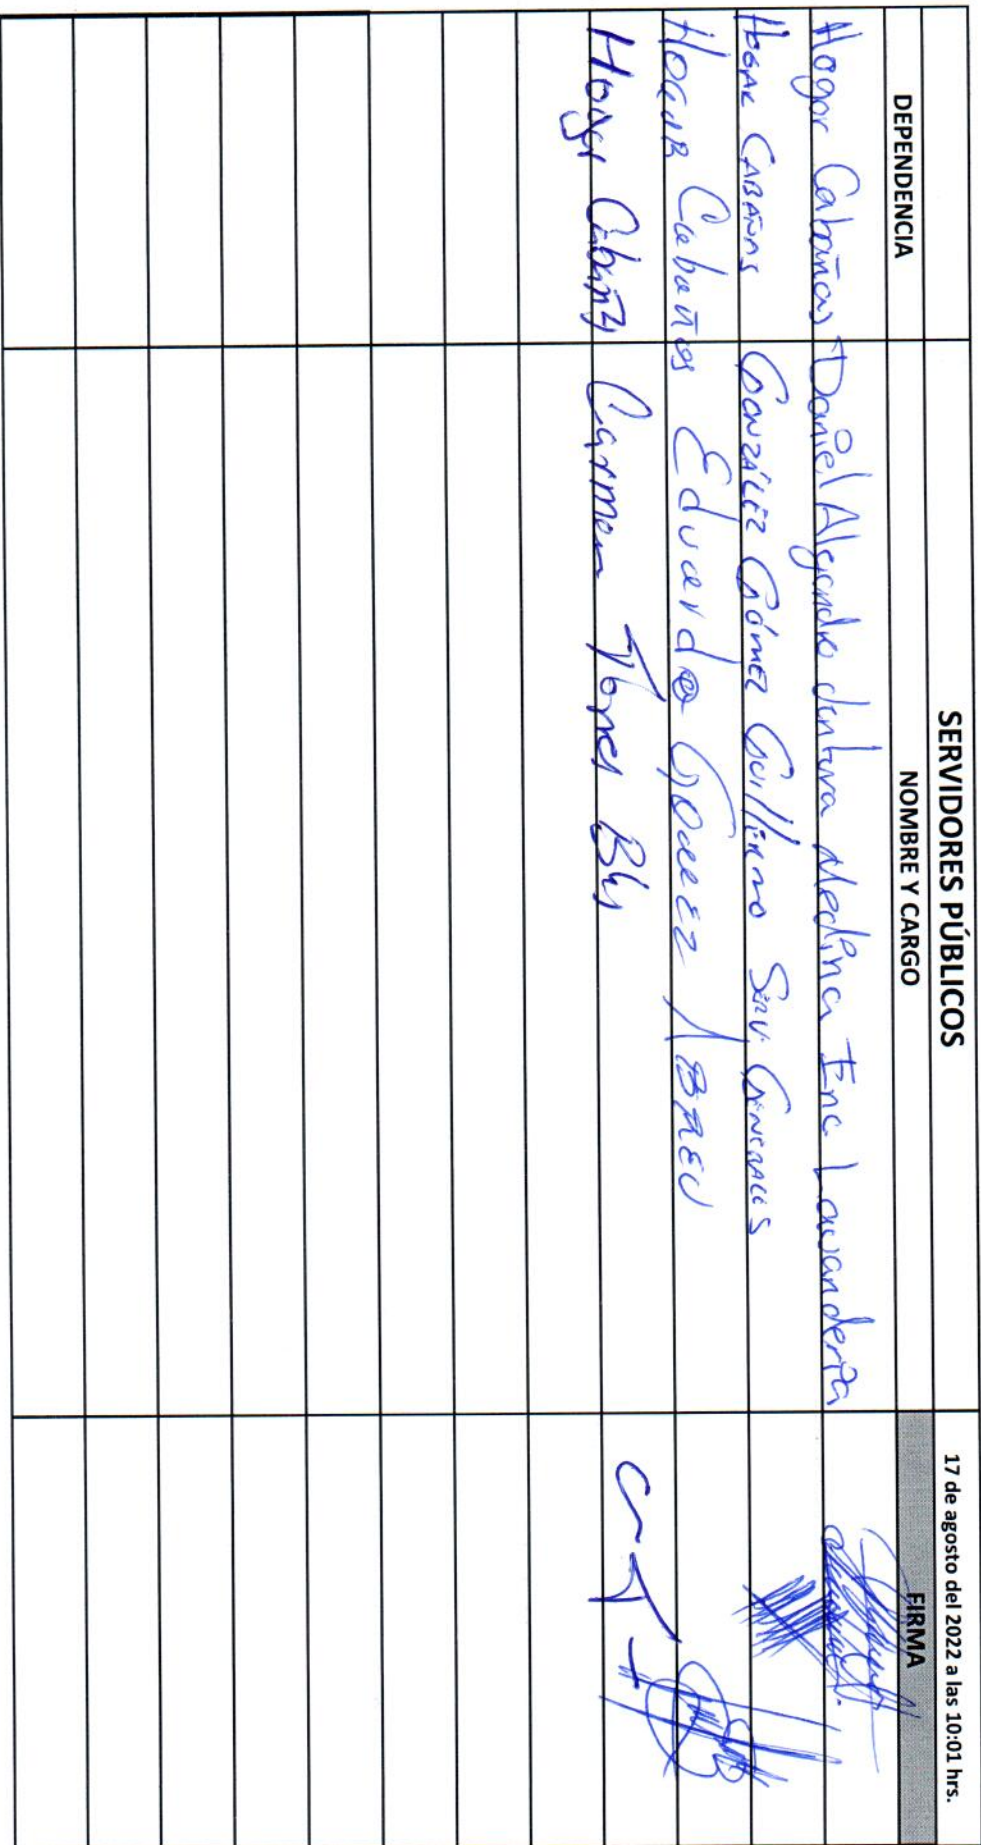 SERVIDORES PÚBLICOS 17 de agosto del 2022 a las 10:01 hrs.
DEPENDENCIA NOMBRE Y CARGO FIRMA
Hogar Cabañas Daniel Alejandro Medina Enc Lavanderia
HOGAR CABAÑAS GONZÁLEZ GÓMEZ GUILLERMO SERV. GENERALES
HOGAR Cabañas Eduardo ABREU
Hogar Cabañas Carmen